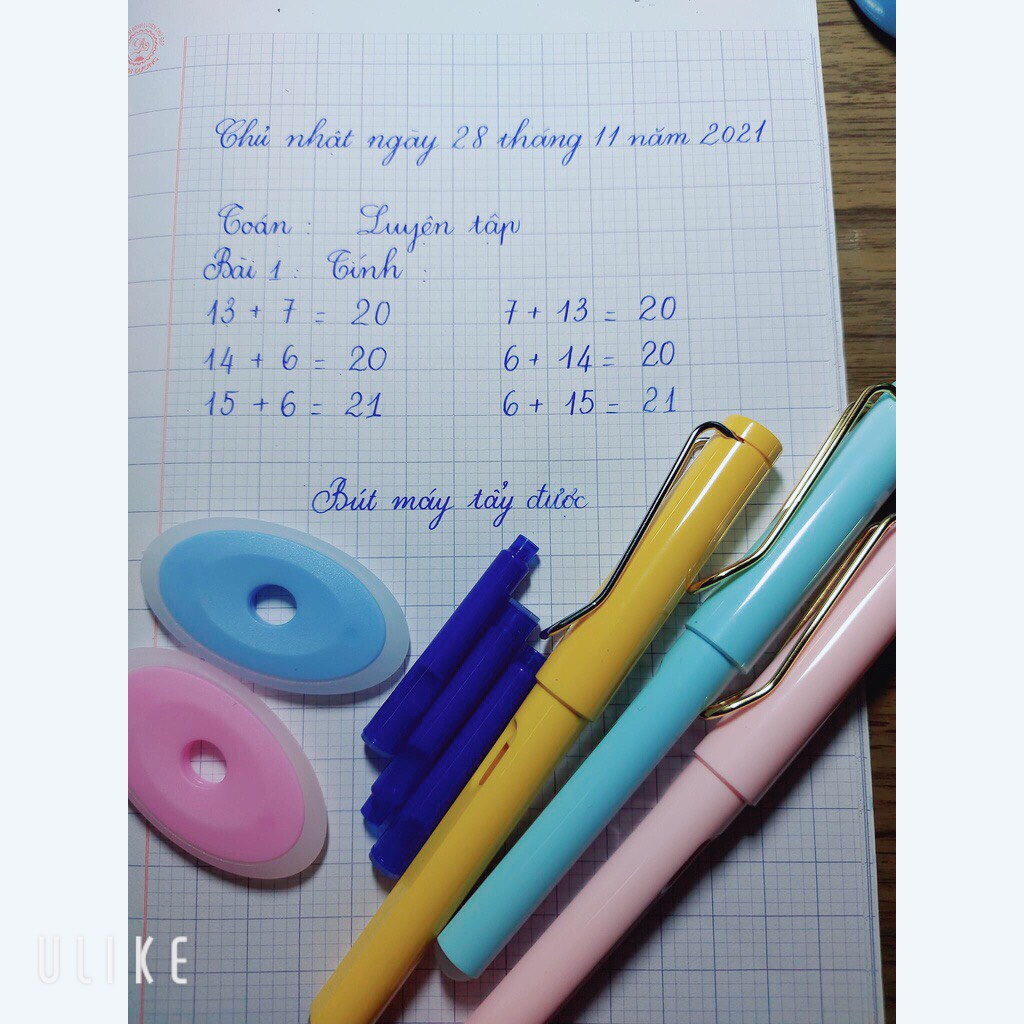 Thủ nhật ngày 28 tháng 11 năm 2021
Toán : Luyện tập
Bài 1 : Tính :
13 + 7 = 20 7 + 13 = 20
14 + 6 = 20 6 + 14 = 20
15 + 6 = 21 6 + 15 = 21
Bút máy tẩy được
ULIKE